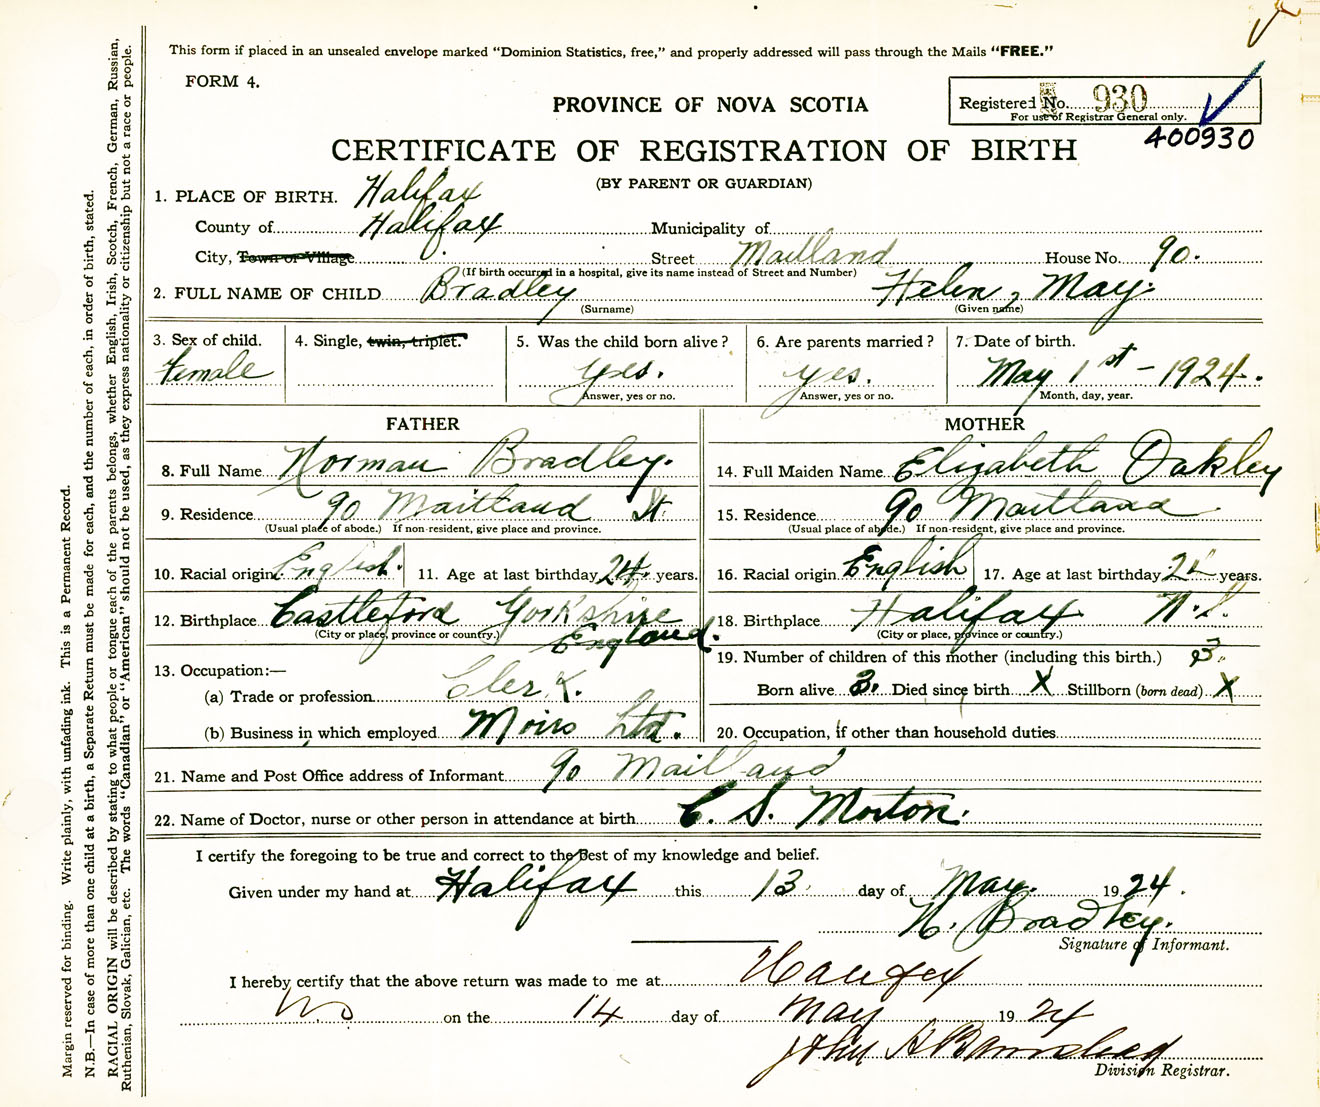 This form if placed in an unsealed envelope marked "Dominion Statistics, free," and properly addressed will pass through the Mails "FREE."
FORM 4.
PROVINCE OF NOVA SCOTIA
Registered No. 930
For use of Registrar General only.
400930
CERTIFICATE OF REGISTRATION OF BIRTH
(BY PARENT OR GUARDIAN)
1. PLACE OF BIRTH. Halifax
County of Halifax Municipality of
City, Town or Village Street Maitland House No. 90.
(If birth occurred in a hospital, give its name instead of Street and Number)
2. FULL NAME OF CHILD Bradley Helen, May.
(Surname) (Given name)
3. Sex of child. 4. Single, twin, triplet. 5. Was the child born alive? 6. Are parents married? 7. Date of birth.
Female yes. yes. May 1st - 1924.
Answer, yes or no. Answer, yes or no. Month, day, year.
FATHER MOTHER
8. Full Name Norman Bradley. 14. Full Maiden Name Elizabeth Oakley
9. Residence 90 Maitland St. 15. Residence 90 Maitland
(Usual place of abode.) If non-resident, give place and province. (Usual place of abode.) If non-resident, give place and province.
10. Racial origin English. 11. Age at last birthday 24. years. 16. Racial origin English 17. Age at last birthday years.
12. Birthplace Castleford Yorkshire 18. Birthplace Halifax N.S.
(City or place, province or country.) England. (City or place, province or country.)
13. Occupation:— 19. Number of children of this mother (including this birth.) 3.
(a) Trade or profession Clerk. Born alive 3. Died since birth X Stillborn (born dead) X
(b) Business in which employed Moirs Ltd. 20. Occupation, if other than household duties
21. Name and Post Office address of Informant 90 Maitland
22. Name of Doctor, nurse or other person in attendance at birth C. S. Morton.
I certify the foregoing to be true and correct to the Best of my knowledge and belief.
Given under my hand at Halifax this 13 day of May. 1924.
N. Bradley.
Signature of Informant.
I hereby certify that the above return was made to me at Halifax
NS on the 14 day of May 1924
John A Barnstead
Division Registrar.
Margin reserved for binding. Write plainly, with unfading ink. This is a Permanent Record.
N.B.—In case of more than one child at a birth, a Separate Return must be made for each, and the number of each, in order of birth, stated.
RACIAL ORIGIN will be described by stating to what people or tongue each of the parents belongs, whether English, Irish, Scotch, French, German, Russian,
Ruthenian, Slovak, Galician, etc. The words "Canadian" or "American" should not be used, as they express nationality or citizenship but not a race or people.